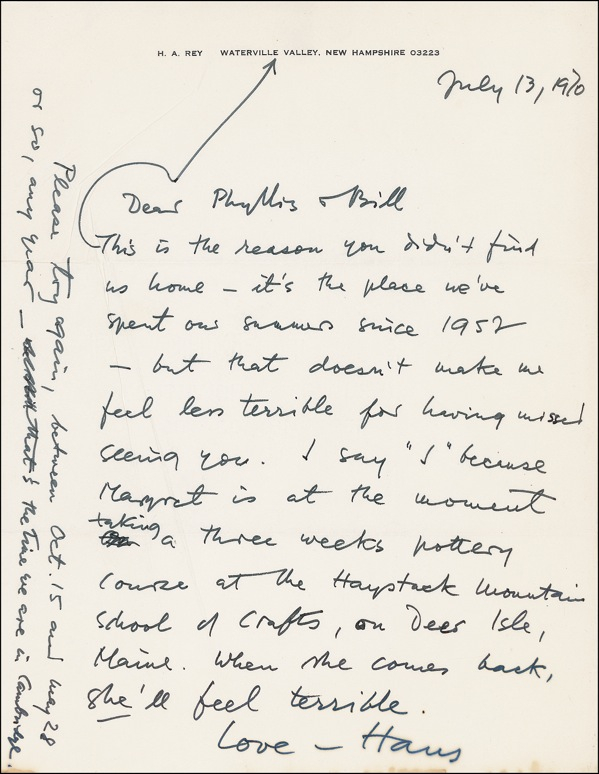 H. A. REY WATERVILLE VALLEY, NEW HAMPSHIRE 03223
July 13, 1970
Dear Phyllis & Bill
This is the reason you didn't find
us home – it's the place we've
spent our summers since 1952
– but that doesn't make me
feel less terrible for having missed
seeing you. I say "I" because
Margret is at the moment
taking a three weeks pottery
course at the Haystack Mountain
School of Crafts, on Deer Isle,
Maine. When she comes back,
she'll feel terrible.
Love – Hans
Please try again, between Oct. 15 and May 28
or so, any year – that's the time we are in Cambridge.